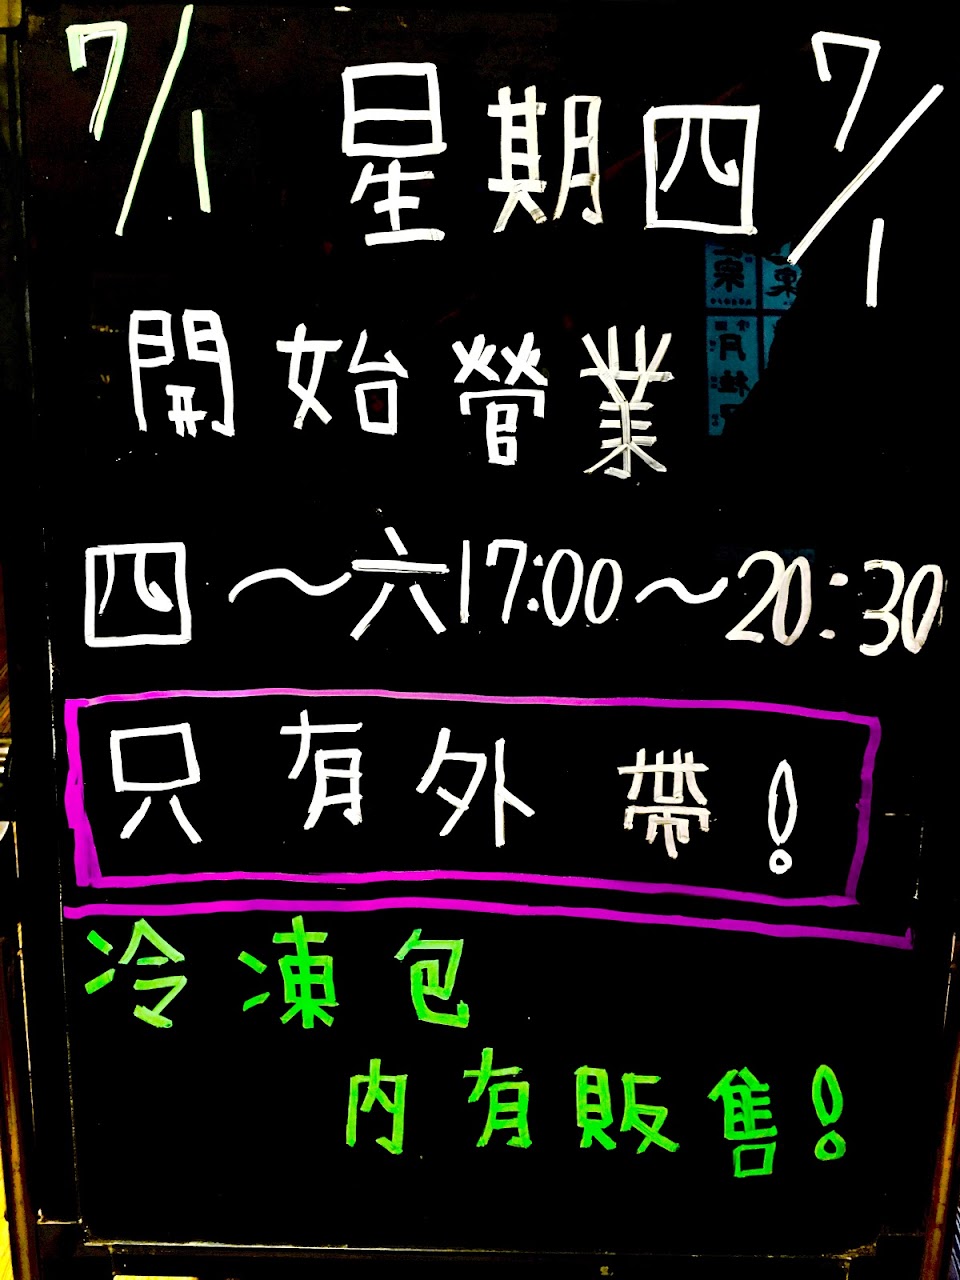 7/1 星期四 7/1
開始營業
四~六17:00~20:30
只有外帶!
冷凍包
內有販售!